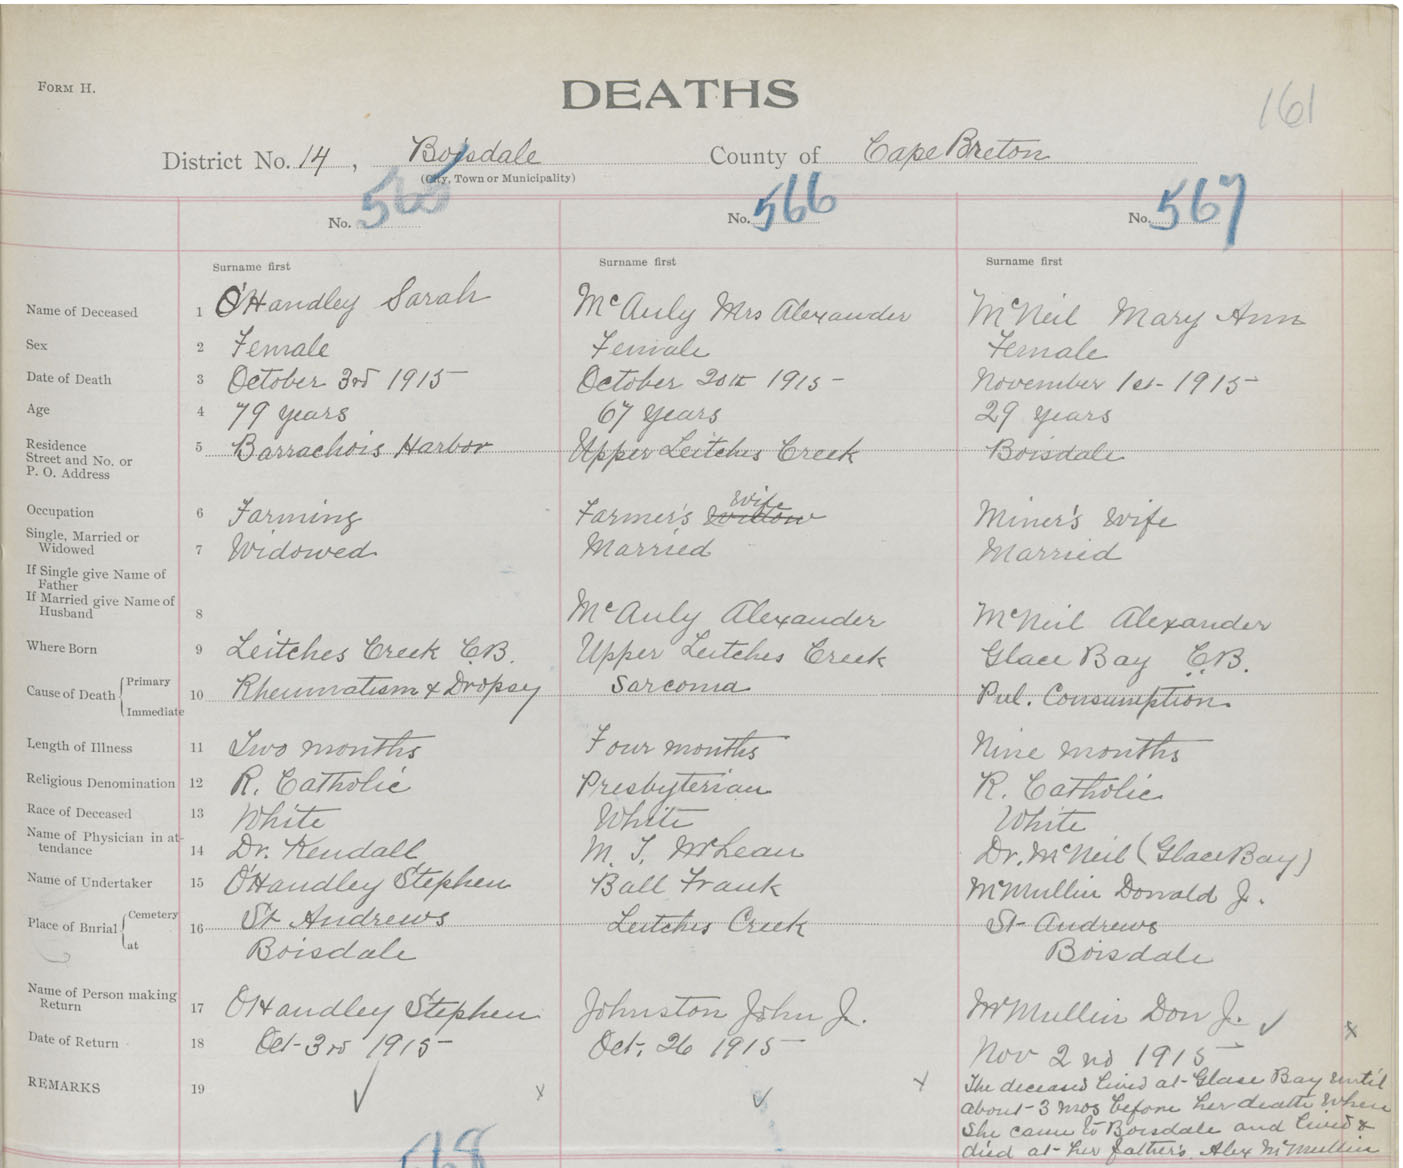 FORM H.
DEATHS
161
District No. 14, Boisdale County of Cape Breton
(City, Town or Municipality)
No. 565 No. 566 No. 567
Surname first Surname first Surname first
Name of Deceased 1 O'Handley Sarah McAuly Mrs Alexander McNeil Mary Ann
Sex 2 Female Female Female
Date of Death 3 October 3rd 1915 October 20th 1915 November 1st 1915
Age 4 79 years 67 years 29 years
Residence Street and No. or P. O. Address 5 Barrachois Harbor Upper Leitches Creek Boisdale
Occupation 6 Farming Farmer's Widow Wife Miner's Wife
Single, Married or Widowed 7 Widowed Married Married
If Single give Name of Father
If Married give Name of Husband 8 McAuly Alexander McNeil Alexander
Where Born 9 Leitches Creek C.B. Upper Leitches Creek Glace Bay C.B.
Cause of Death Primary Immediate 10 Rheumatism & Dropsy Sarcoma Pul. Consumption
Length of Illness 11 Two months Four months Nine months
Religious Denomination 12 R. Catholic Presbyterian R. Catholic
Race of Deceased 13 White White White
Name of Physician in attendance 14 Dr. Kendall M. T. McLean Dr. McNeil (Glace Bay)
Name of Undertaker 15 O'Handley Stephen Ball Frank McMullin Donald J.
Place of Burial Cemetery at 16 St Andrews Leitches Creek St Andrews
Boisdale Boisdale
Name of Person making Return 17 O'Handley Stephen Johnston John J. McMullin Don J.
Date of Return 18 Oct 3rd 1915 Oct. 26 1915 Nov 2nd 1915
REMARKS 19 The deceased lived at Glase Bay until
about 3 mos before her death when
She came to Boisdale and lived &
died at her father's. Alex McMullin
568